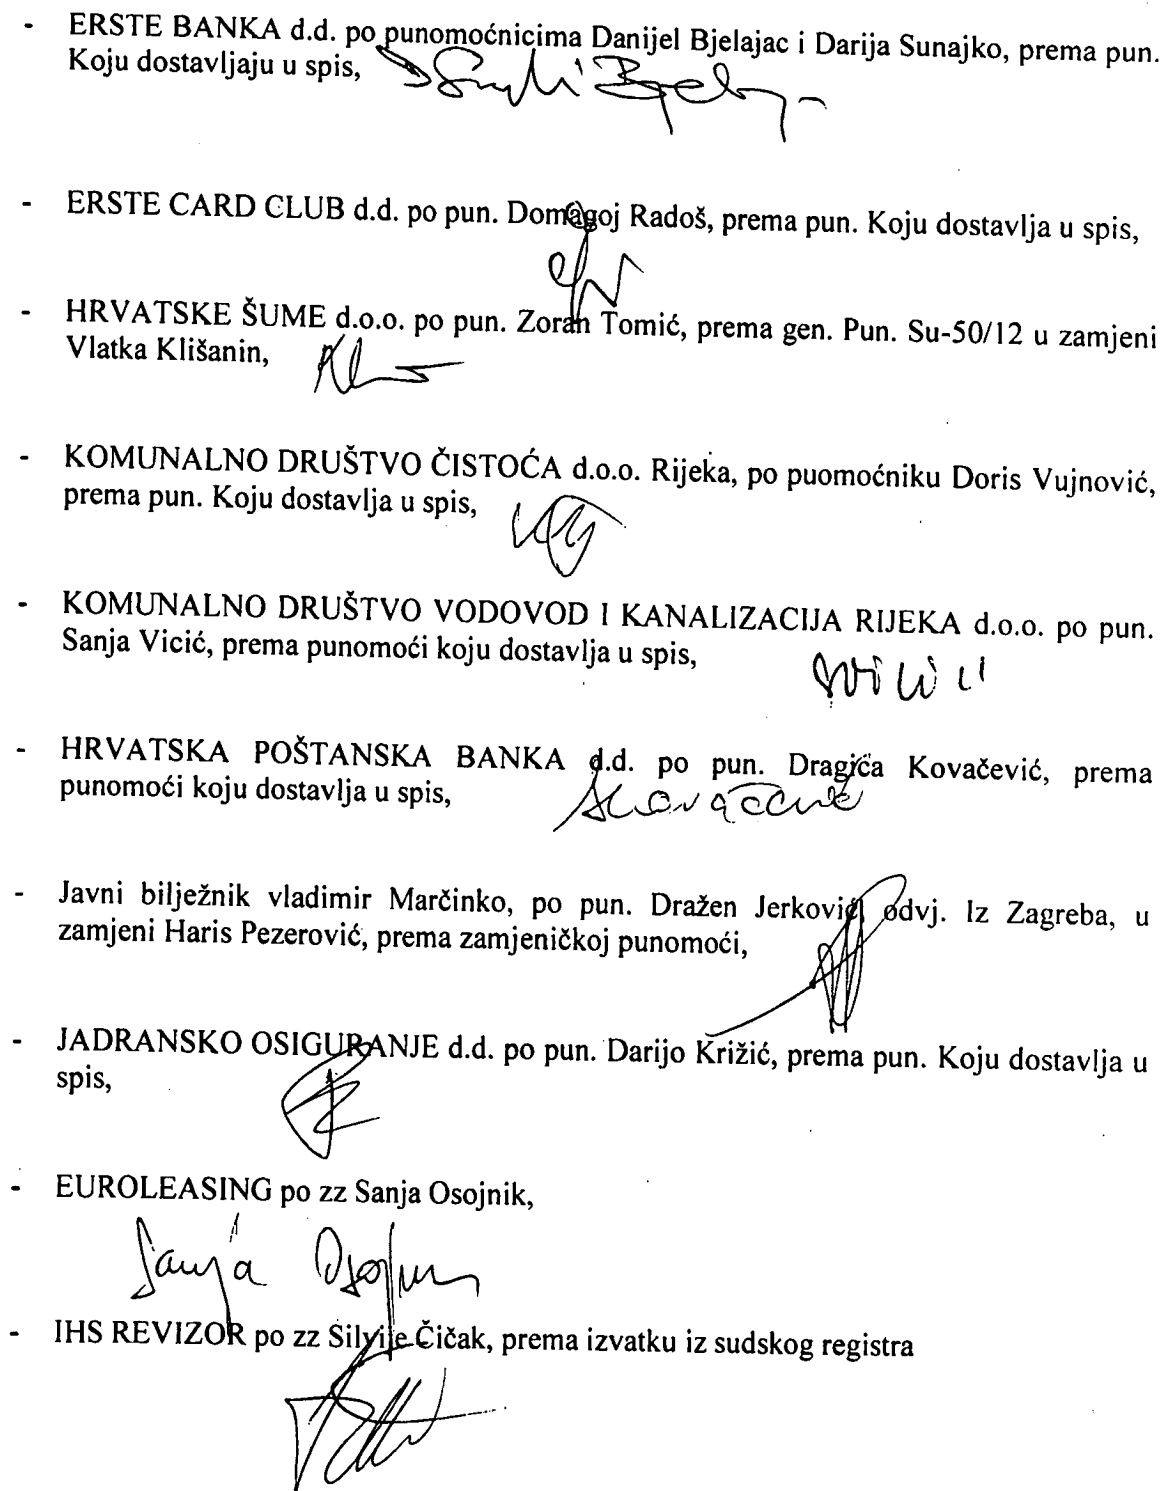 - ERSTE BANKA d.d. po punomoćnicima Danijel Bjelajac i Darija Sunajko, prema pun.
Koju dostavljaju u spis,
- ERSTE CARD CLUB d.d. po pun. Domagoj Radoš, prema pun. Koju dostavlja u spis,
- HRVATSKE ŠUME d.o.o. po pun. Zoran Tomić, prema gen. Pun. Su-50/12 u zamjeni
Vlatka Klišanin,
- KOMUNALNO DRUŠTVO ČISTOĆA d.o.o. Rijeka, po puomoćniku Doris Vujnović,
prema pun. Koju dostavlja u spis,
- KOMUNALNO DRUŠTVO VODOVOD I KANALIZACIJA RIJEKA d.o.o. po pun.
Sanja Vicić, prema punomoći koju dostavlja u spis,
- HRVATSKA POŠTANSKA BANKA d.d. po pun. Dragica Kovačević, prema
punomoći koju dostavlja u spis,
- Javni bilježnik vladimir Marčinko, po pun. Dražen Jerković, odvj. Iz Zagreba, u
zamjeni Haris Pezerović, prema zamjeničkoj punomoći,
- JADRANSKO OSIGURANJE d.d. po pun. Darijo Križić, prema pun. Koju dostavlja u
spis,
- EUROLEASING po zz Sanja Osojnik,
Sanja Osojnik
- IHS REVIZOR po zz Silvije Čičak, prema izvatku iz sudskog registra